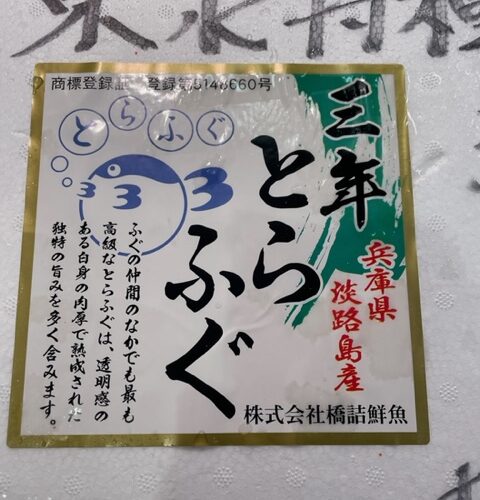 商標登録証 登録第5148660号
とらふぐ
333
三年
とらふぐ
兵庫県
淡路島産
ふぐの仲間のなかでも最も
高級なとらふぐは、透明感の
ある白身の肉厚で熟成された
独特の旨みを多く含みます。
株式会社橋詰鮮魚